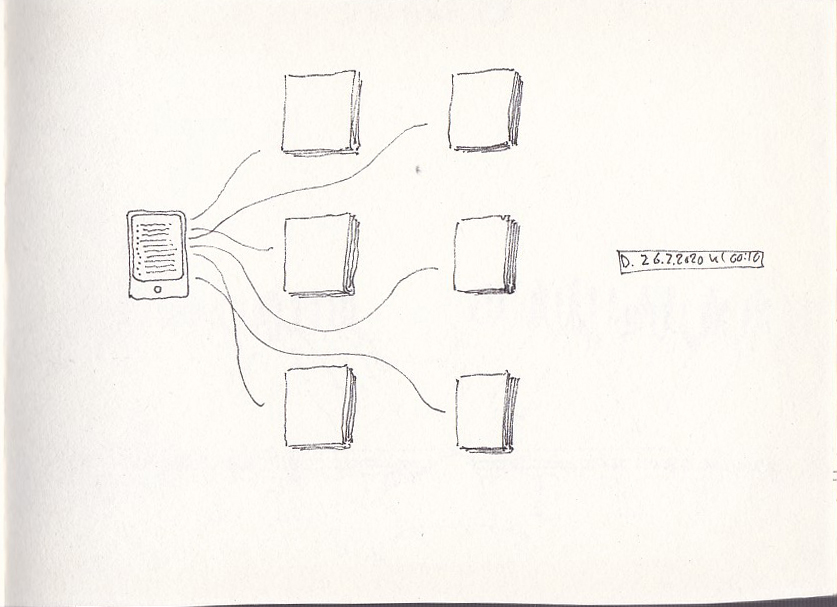 D. 26.2.2020 kl 00:10